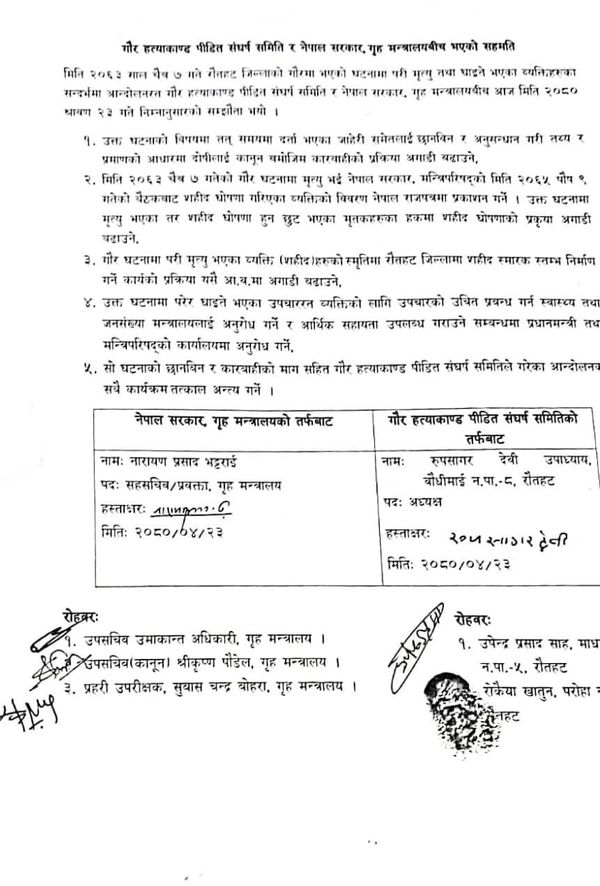 गौर हत्याकाण्ड पीडित संघर्ष समिति र नेपाल सरकार, गृह मन्त्रालयबीच भएको सहमति
मिति २०६३ साल चैत्र ७ गते रौतहट जिल्लाको गौरमा भएको घटनामा परी मृत्यु तथा घाइते भएका व्यक्तिहरूका
सन्दर्भमा आन्दोलनरत गौर हत्याकाण्ड पीडित संघर्ष समिति र नेपाल सरकार, गृह मन्त्रालयबीच आज मिति २०८०
श्रावण २३ गते निम्नानुसारको सम्झौता भयो ।
१. उक्त घटनाको विषयमा तत् समयमा दर्ता भएका जाहेरी समेतलाई छानविन र अनुसन्धान गरी तथ्य र
प्रमाणको आधारमा दोषीलाई कानून बमोजिम कारवाहीको प्रक्रिया अगाडी बढाउने,
२. मिति २०६३ चैत्र ७ गतेको गौर घटनामा मृत्यु भई नेपाल सरकार, मन्त्रिपरिषद्को मिति २०६५ पौष ९
गतेको बैठकबाट शहीद घोषणा गरिएका व्यक्तिको विवरण नेपाल राजपत्रमा प्रकाशन गर्ने । उक्त घटनामा
मृत्यु भएका तर शहीद घोषणा हुन छुट भएका मृतकहरुका हकमा शहीद घोषणाको प्रकृया अगाडी
बढाउने,
३. गौर घटनामा परी मृत्यु भएका व्यक्ति (शहीद)हरुको स्मृतिमा रौतहट जिल्लामा शहीद स्मारक स्तम्भ निर्माण
गर्ने कार्यको प्रक्रिया यसै आ.व.मा अगाडी बढाउने,
४. उक्त घटनामा परेर घाइते भएका उपचाररत व्यक्तिको लागि उपचारको उचित प्रवन्ध गर्न स्वास्थ्य तथा
जनसंख्या मन्त्रालयलाई अनुरोध गर्ने र आर्थिक सहायता उपलब्ध गराउने सम्बन्धमा प्रधानमन्त्री तथा
मन्त्रिपरिषद्को कार्यालयमा अनुरोध गर्ने,
५. सो घटनाको छानविन र कारवाहीको माग सहित गौर हत्याकाण्ड पीडित संघर्ष समितिले गरेका आन्दोलनका
सवै कार्यक्रम तत्काल अन्त्य गर्ने ।
नेपाल सरकार, गृह मन्त्रालयको तर्फबाट
नामः नारायण प्रसाद भट्टराई
पदः सहसचिव/प्रवक्ता, गृह मन्त्रालय
हस्ताक्षरः
मितिः २०८०/०४/२३
गौर हत्याकाण्ड पीडित संघर्ष समितिको
तर्फबाट
नामः रुपसागर देवी उपाध्याय,
बौधीमाई न.पा.-८, रौतहट
पदः अध्यक्ष
हस्ताक्षरः रुपसागर देवी
मितिः २०८०/०४/२३
रोहवरः
१. उपसचिव उमाकान्त अधिकारी, गृह मन्त्रालय ।
उपसचिव(कानून) श्रीकृष्ण पौडेल, गृह मन्त्रालय ।
३. प्रहरी उपरीक्षक, सुवास चन्द्र बोहरा, गृह मन्त्रालय ।
रोहवरः
१. उपेन्द्र प्रसाद साह, माध
न.पा.-५, रौतहट
रोकैया खातुन, परोहा न
रौतहट